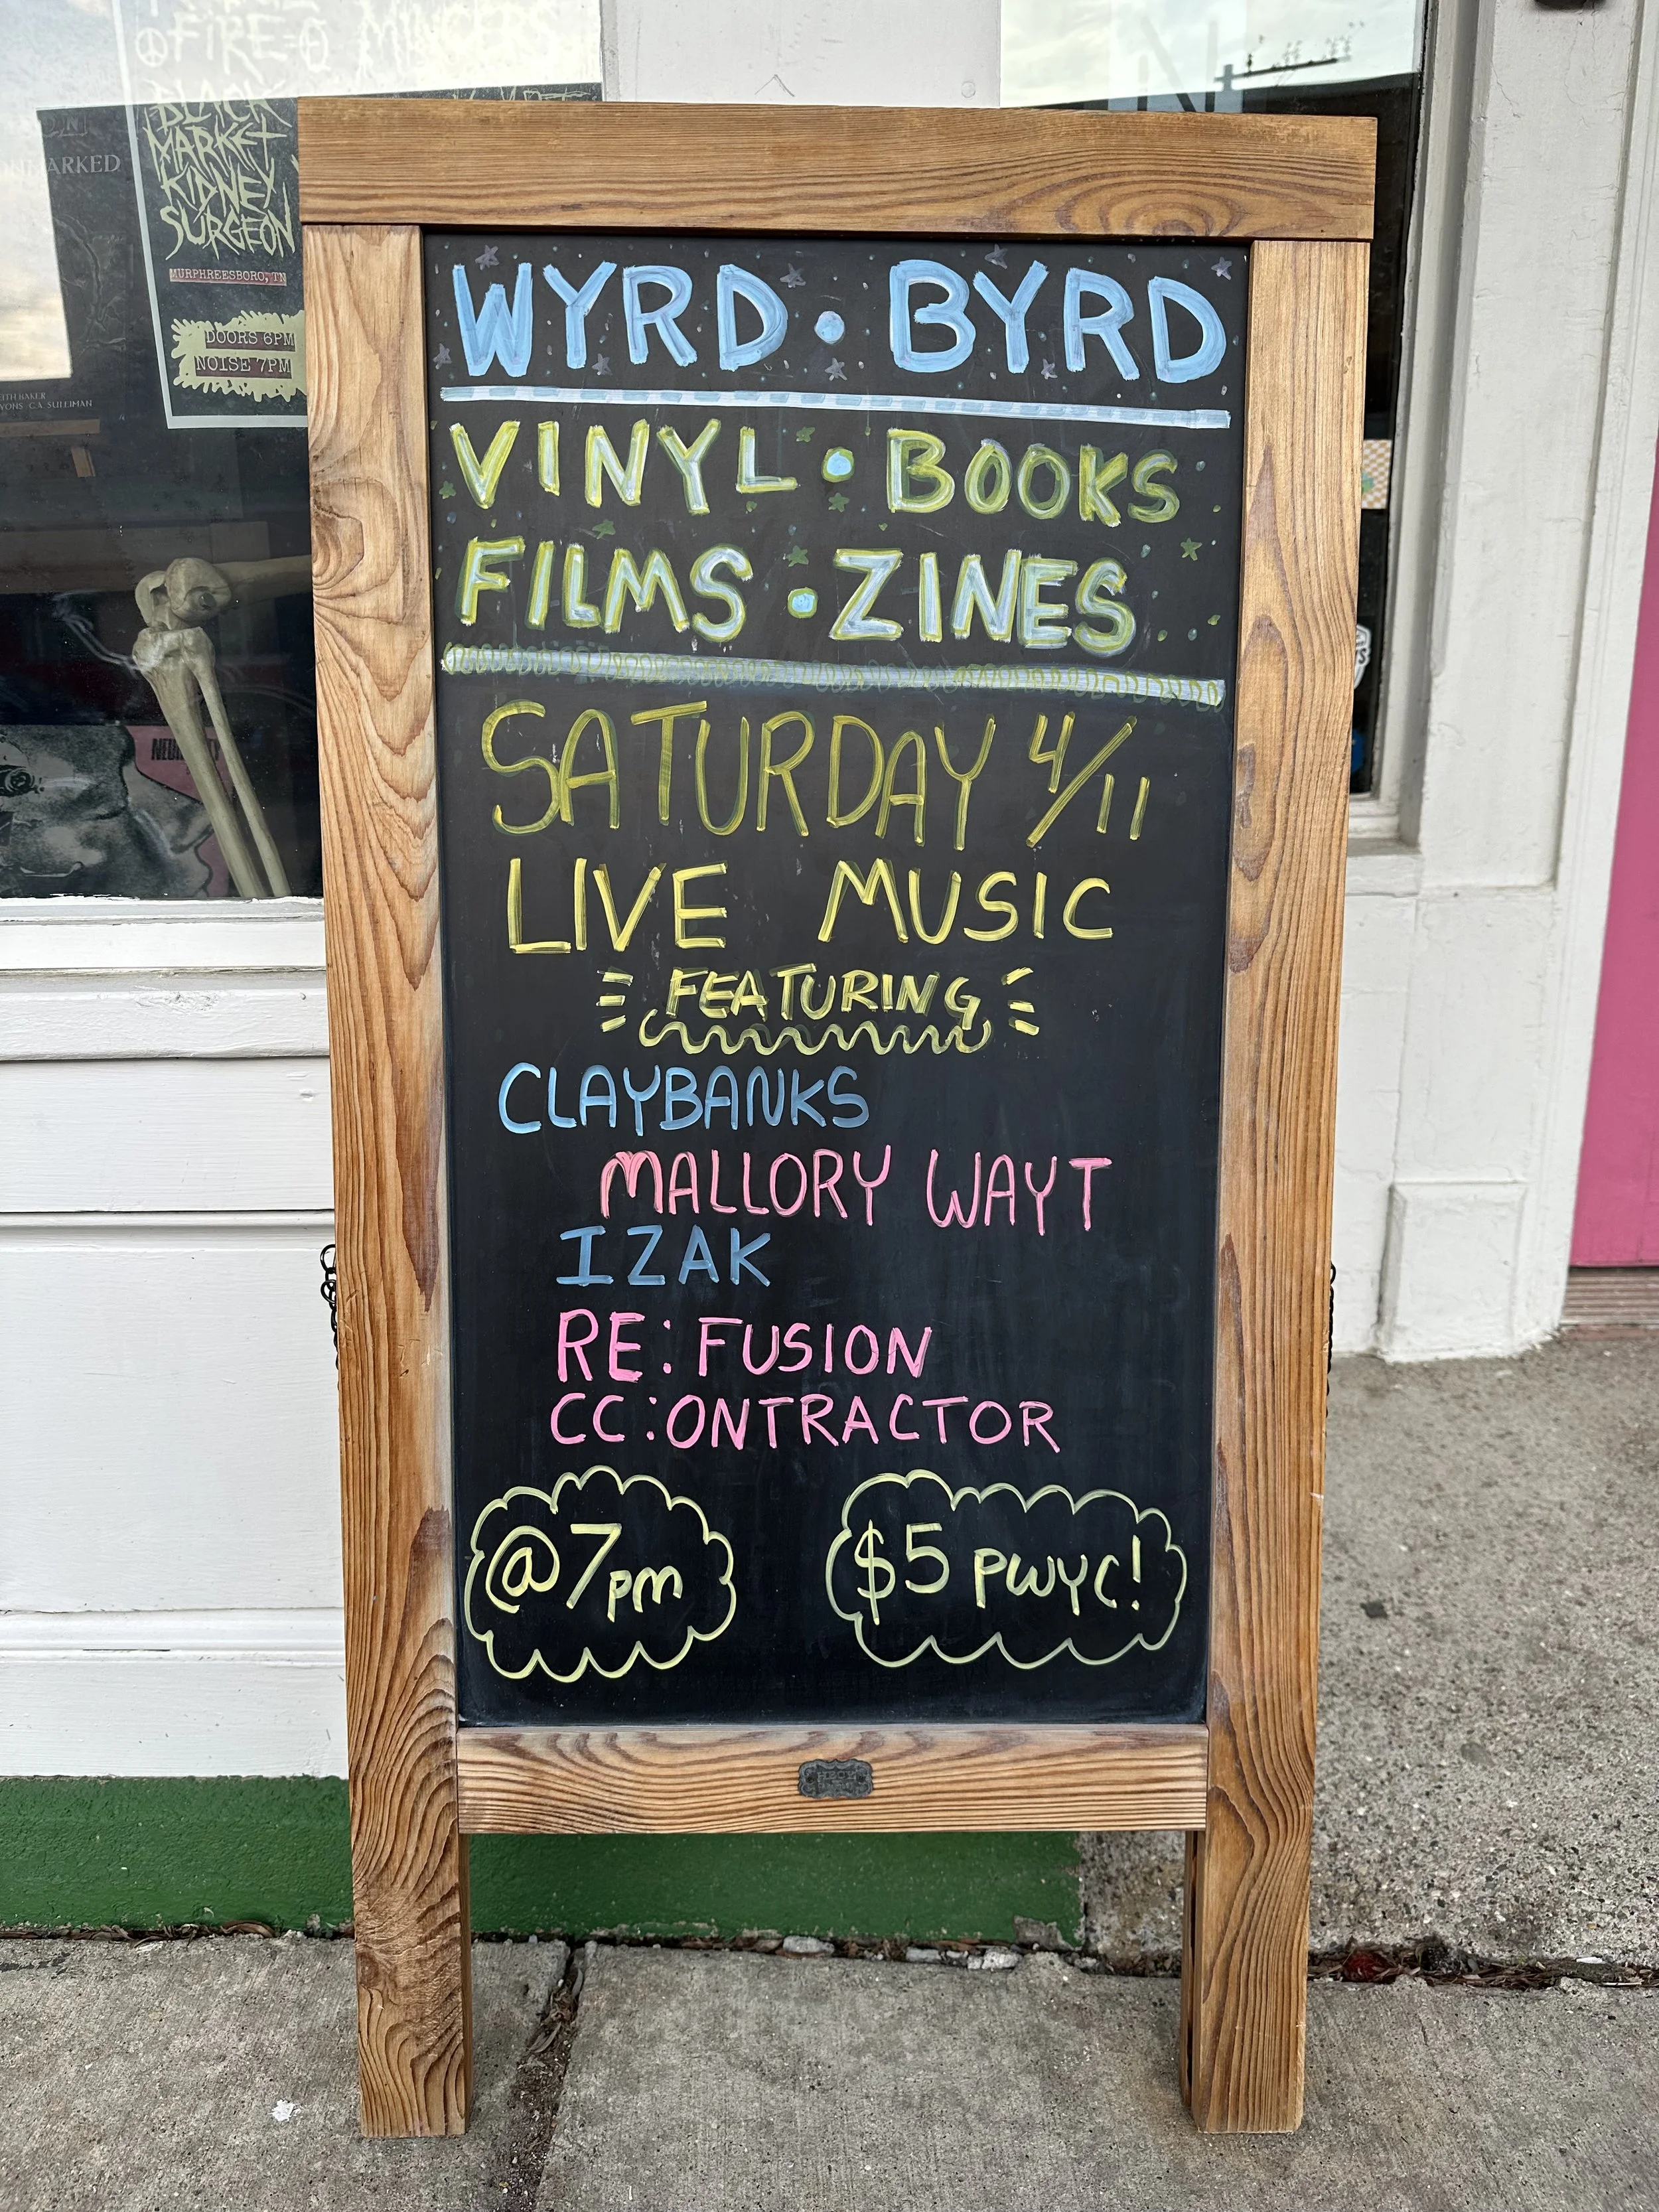 FIRE
BLACK
MARKET
KIDNEY
SURGEON
MURPHREESBORO, TN
DOORS 6PM
NOISE 7PM
WYRD • BYRD
VINYL • BOOKS
FILMS • ZINES
SATURDAY 4/11
LIVE MUSIC
FEATURING
CLAYBANKS
MALLORY WAYT
IZAK
RE: FUSION
CC:ONTRACTOR
@7pm
$5 PWYC!